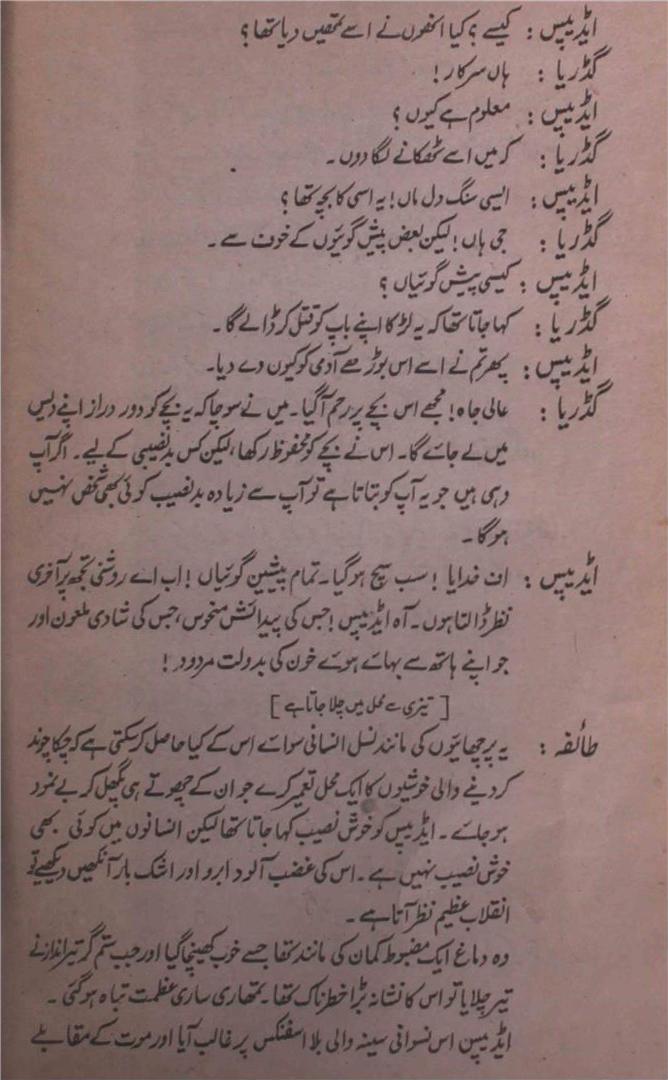 ایڈیپس : کیسے؟ کیا انھوں نے اسے تمھیں دیا تھا؟
گڈریا : ہاں سرکار!
ایڈیپس : معلوم ہے کیوں؟
گڈریا : کہ میں اسے ٹھکانے لگا دوں۔
ایڈیپس : ایسی سنگ دل ماں! یہ اسی کا بچہ تھا؟
گڈریا : جی ہاں! لیکن بعض پیش گوئیوں کے خوف سے۔
ایڈیپس : کیسی پیش گوئیاں؟
گڈریا : کہا جاتا تھا کہ یہ لڑکا اپنے باپ کو قتل کر ڈالے گا۔
ایڈیپس : پھر تم نے اسے اس بوڑھے آدمی کو کیوں دے دیا۔
گڈریا : عالی جاہ! مجھے اس بچے پر رحم آ گیا۔ میں نے سوچا کہ یہ بچے کو دور دراز اپنے دیس
میں لے جائے گا۔ اس نے بچے کو محفوظ رکھا، لیکن کس بدنصیبی کے لیے۔ اگر آپ
وہی ہیں جو یہ آپ کو بتاتا ہے تو آپ سے زیادہ بدنصیب کوئی بھی شخص نہیں
ہوگا۔
ایڈیپس : اف خدایا! سب سچ ہو گیا۔ تمام پیشین گوئیاں! اب اے روشنی تجھ پر آخری
نظر ڈالتا ہوں۔ آہ ایڈیپس! جس کی پیدائش منحوس، جس کی شادی ملعون اور
جو اپنے ہاتھ سے بہائے ہوئے خون کی بدولت مردود!
[تیزی سے محل میں چلا جاتا ہے]
طائفہ : یہ پرچھائیوں کی مانند نسل انسانی سوائے اس کے کیا حاصل کر سکتی ہے کہ چکاچوند
کر دینے والی خوشیوں کا ایک محل تعمیر کرے جو ان کے چھوتے ہی پگھل کر بے نمود
ہو جائے۔ ایڈیپس کو خوش نصیب کہا جاتا تھا لیکن انسانوں میں کوئی بھی
خوش نصیب نہیں ہے۔ اس کی غضب آلود ابرو اور اشک بار آنکھیں دیکھیے تو
انقلاب عظیم نظر آتا ہے۔
وہ دماغ ایک مضبوط کمان کی مانند تھا جسے خوب کھینچا گیا اور جب ستم گر تیرانداز نے
تیر چلایا تو اس کا نشانہ بڑا خطرناک تھا۔ تمھاری ساری عظمت تباہ ہو گئی۔
ایڈیپس اس نسوانی سینہ والی بلا اسفنکس پر غالب آیا اور موت کے مقابلے